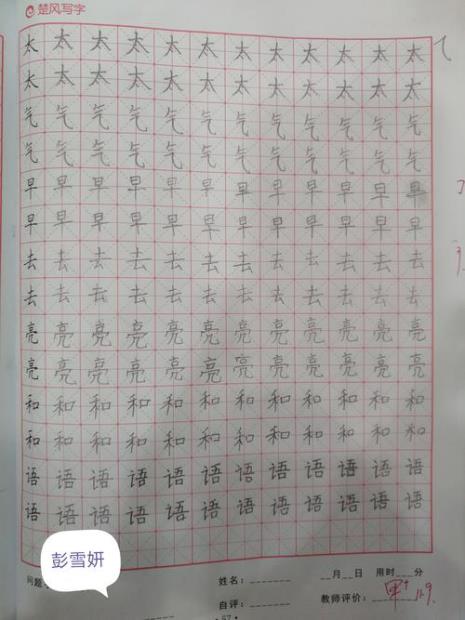 楚风写字
太太太太太太太太太太太太
太太太太太太太太太太太太
气气气气气气气气气气气气
气气气气气气气气气气气气
早早早早早早早早早早早早
早早早早早早早早早早早早
去去去去去去去去去去去去
去去去去去去去去去去去去
亮亮亮亮亮亮亮亮亮亮亮亮
亮亮亮亮亮亮亮亮亮亮亮亮
和和和和和和和和和和和和
和和和和和和和和和和和和
语语语语语语语语语语语语
语语语语语语语语语语语语
彭雪妍
问题
姓名: 月 日 用时 分
自评: 教师评价: 甲+ 11.9.